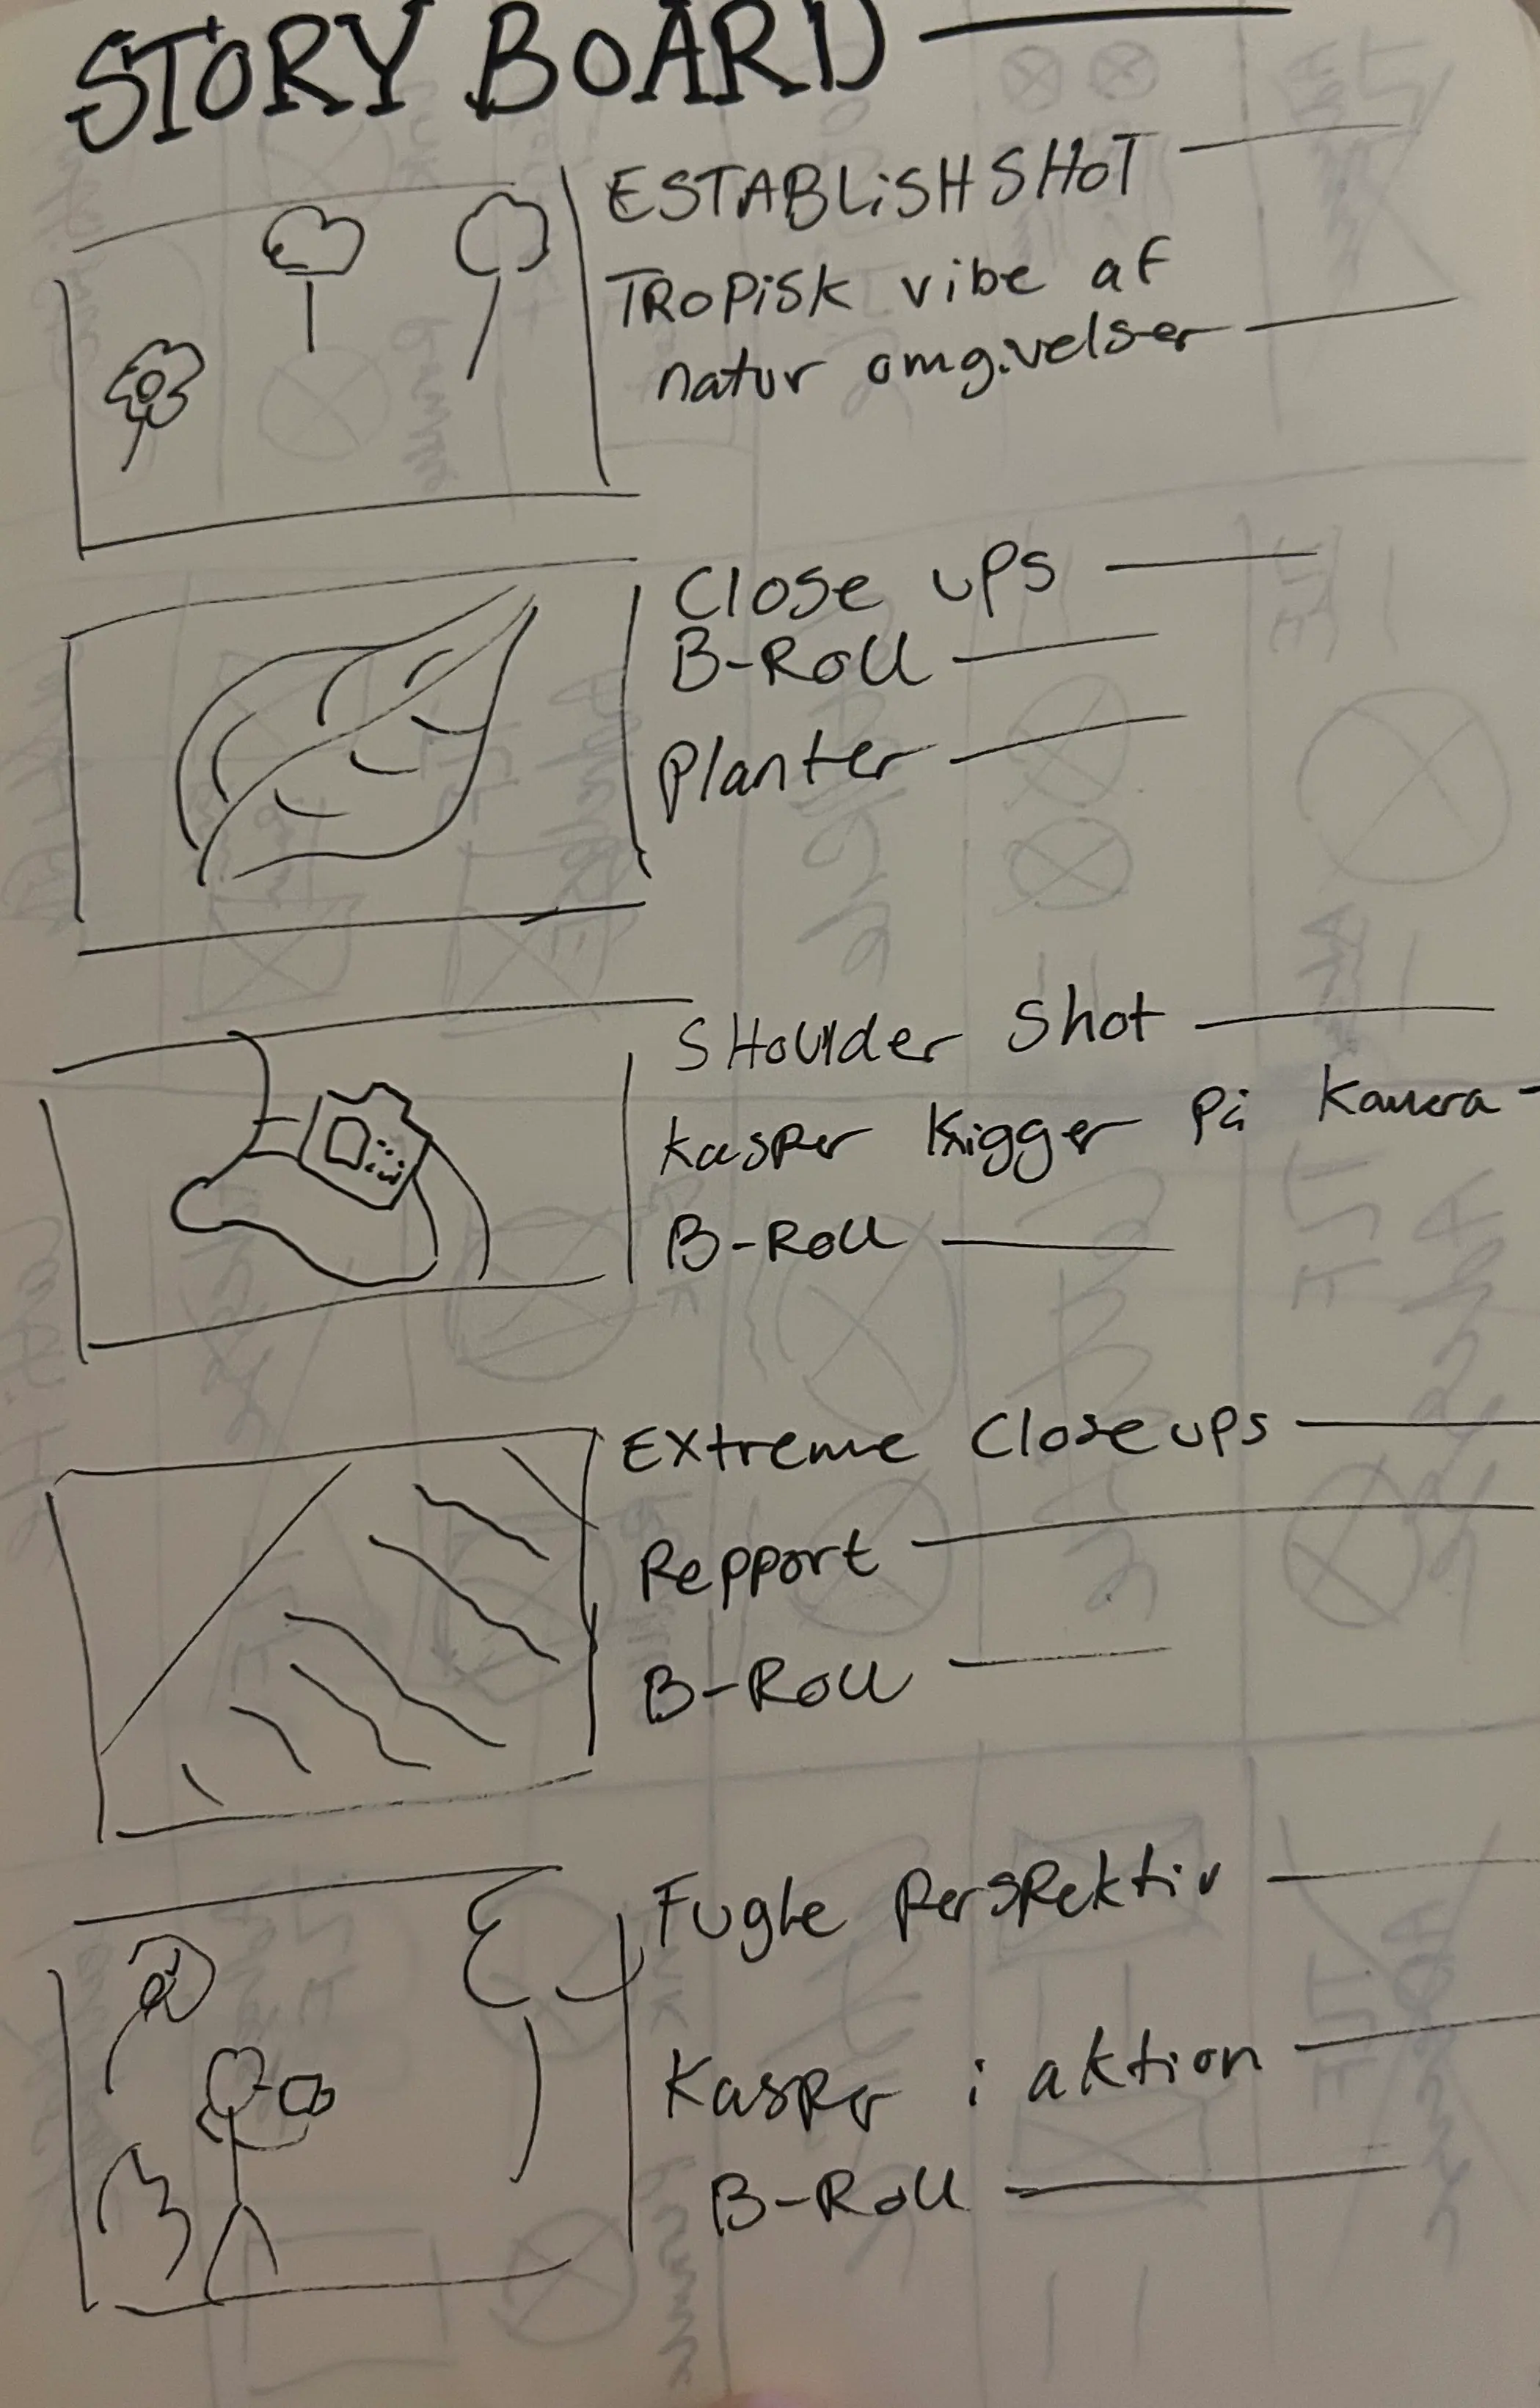 STORY BOARD
ESTABLiSHSHOT
TROPiSK vibe af
natur omgivelser
Close ups
B-Roll
Planter
SHoulder Shot
Kasper Kigger På Kamera
B-Roll
Extreme Closeups
Repport
B-Roll
Fugle Perspektiv
Kasper i aktion
B-Roll